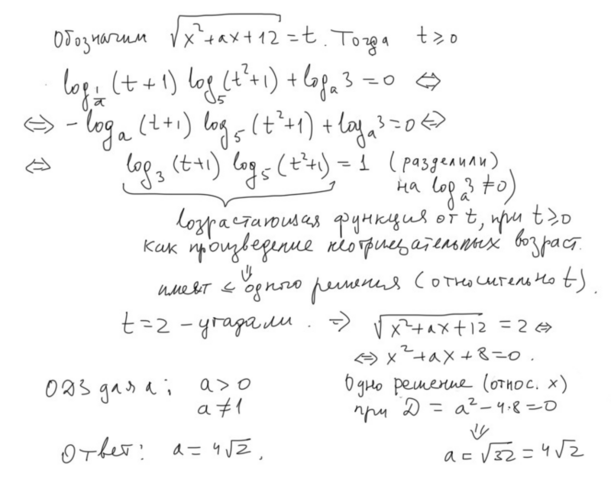 Обозначим √(x²+ax+12) = t. Тогда t ≥ 0
log_{1/a}(t+1) log₅(t²+1) + logₐ3 = 0 ⇔
⇔ -logₐ(t+1) log₅(t²+1) + logₐ3 = 0 ⇔
⇔ log₃(t+1) log₅(t²+1) = 1 (разделили
на logₐ3 ≠ 0)
возрастающая функция от t, при t ≥ 0
как произведение неотрицательных возраст.
⇓
имеет ≤ одного решения (относительно t).
t = 2 – угадали. ⇒ √(x²+ax+12) = 2 ⇔
⇔ x²+ax+8=0.
ОДЗ для a: a > 0
a ≠ 1
Одно решение (относ. x)
при D = a²-4·8=0
⇓
a = √32 = 4√2
Ответ: a = 4√2.